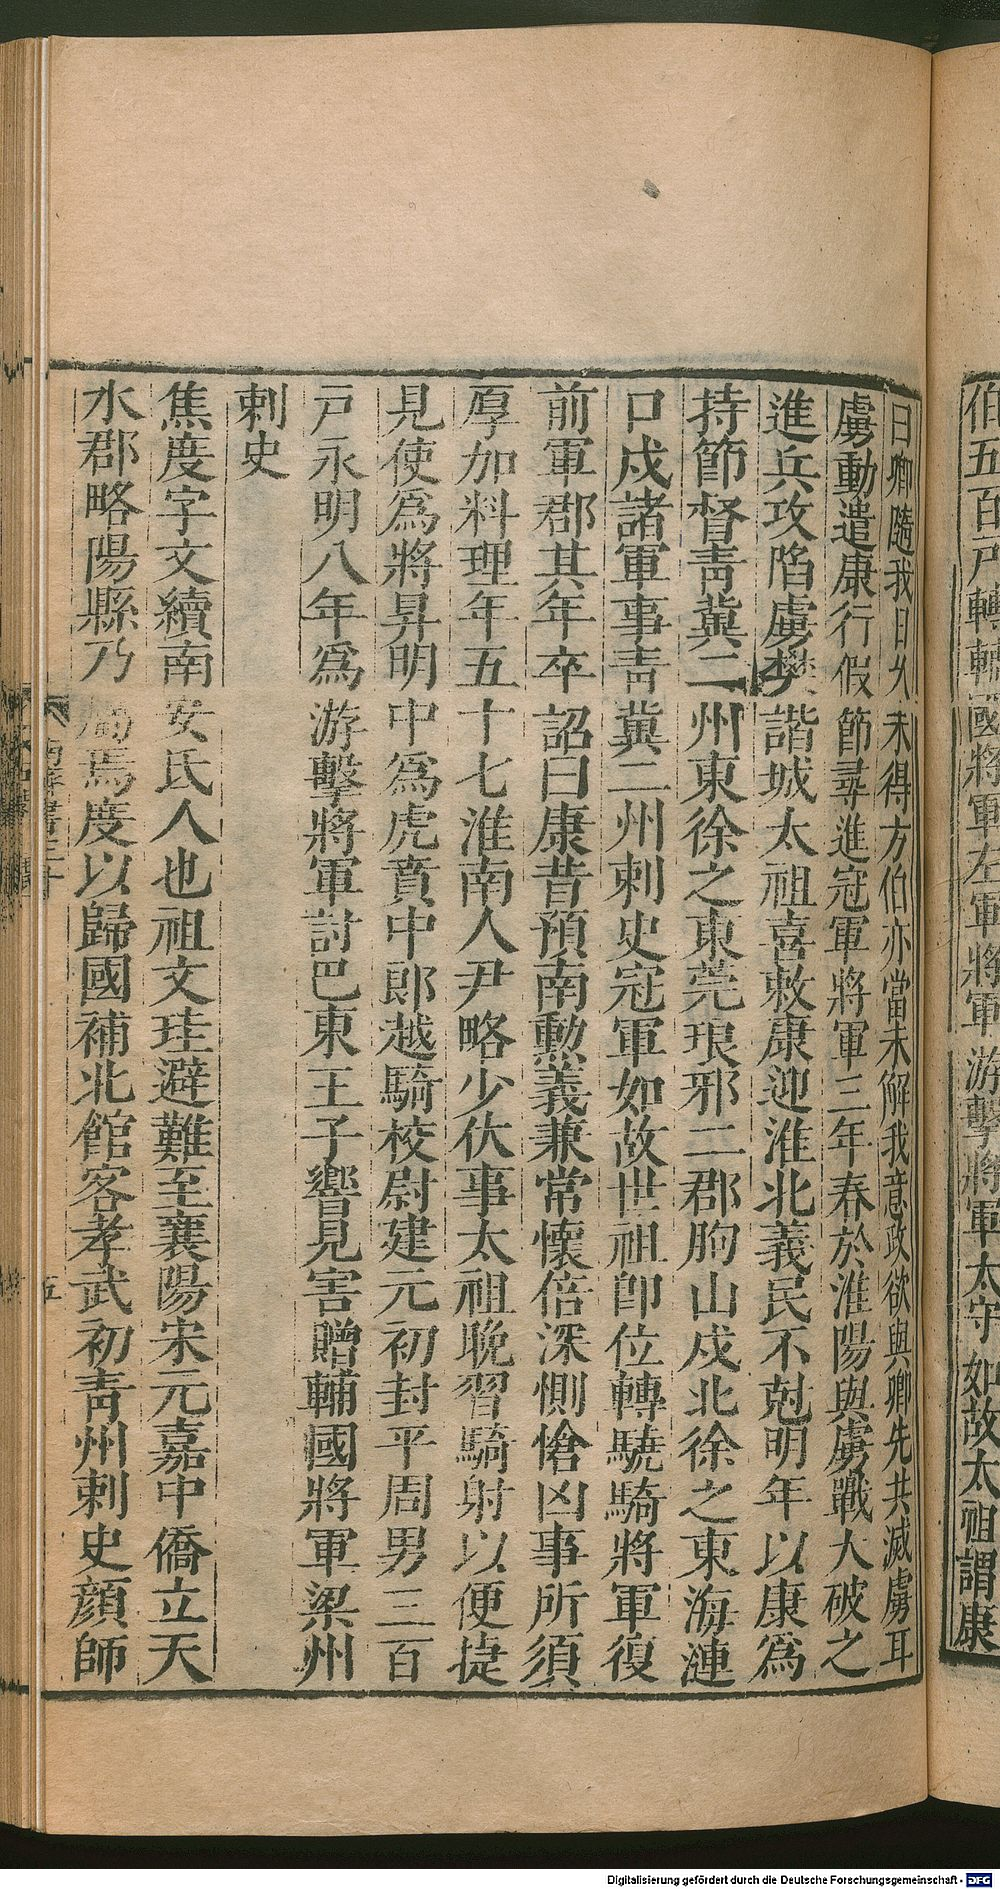 伯五百戶轉輔國將軍左軍將軍游擊將軍太守如故太祖謂康
曰卿隨我日久未得方伯亦當未解我意政欲與卿先共滅虜耳
虜動遣康行假節尋進冠軍將軍三年春於淮陽與虜戰大破之
進兵攻陷虜樊諧城太祖喜敕康迎淮北義民不剋明年以康爲
持節督靑冀二州東徐之東莞琅邪二郡朐山戍北徐之東海漣
口戍諸軍事靑冀二州刺史冠軍如故世祖卽位轉驍騎將軍復
前軍郡其年卒詔曰康昔預南勳義兼常懷倍深惻愴凶事所須
厚加料理年五十七淮南人尹略少伏事太祖晚習騎射以便捷
見使爲將昇明中爲虎賁中郎越騎校尉建元初封平周男三百
戶永明八年爲游擊將軍討巴東王子響見害贈輔國將軍梁州
刺史
焦度字文續南安氏人也祖文珪避難至襄陽宋元嘉中僑立天
水郡略陽縣乃屬焉度以歸國補北館客孝武初靑州刺史顏師
五
Digitalisierung gefördert durch die Deutsche Forschungsgemeinschaft - DFG